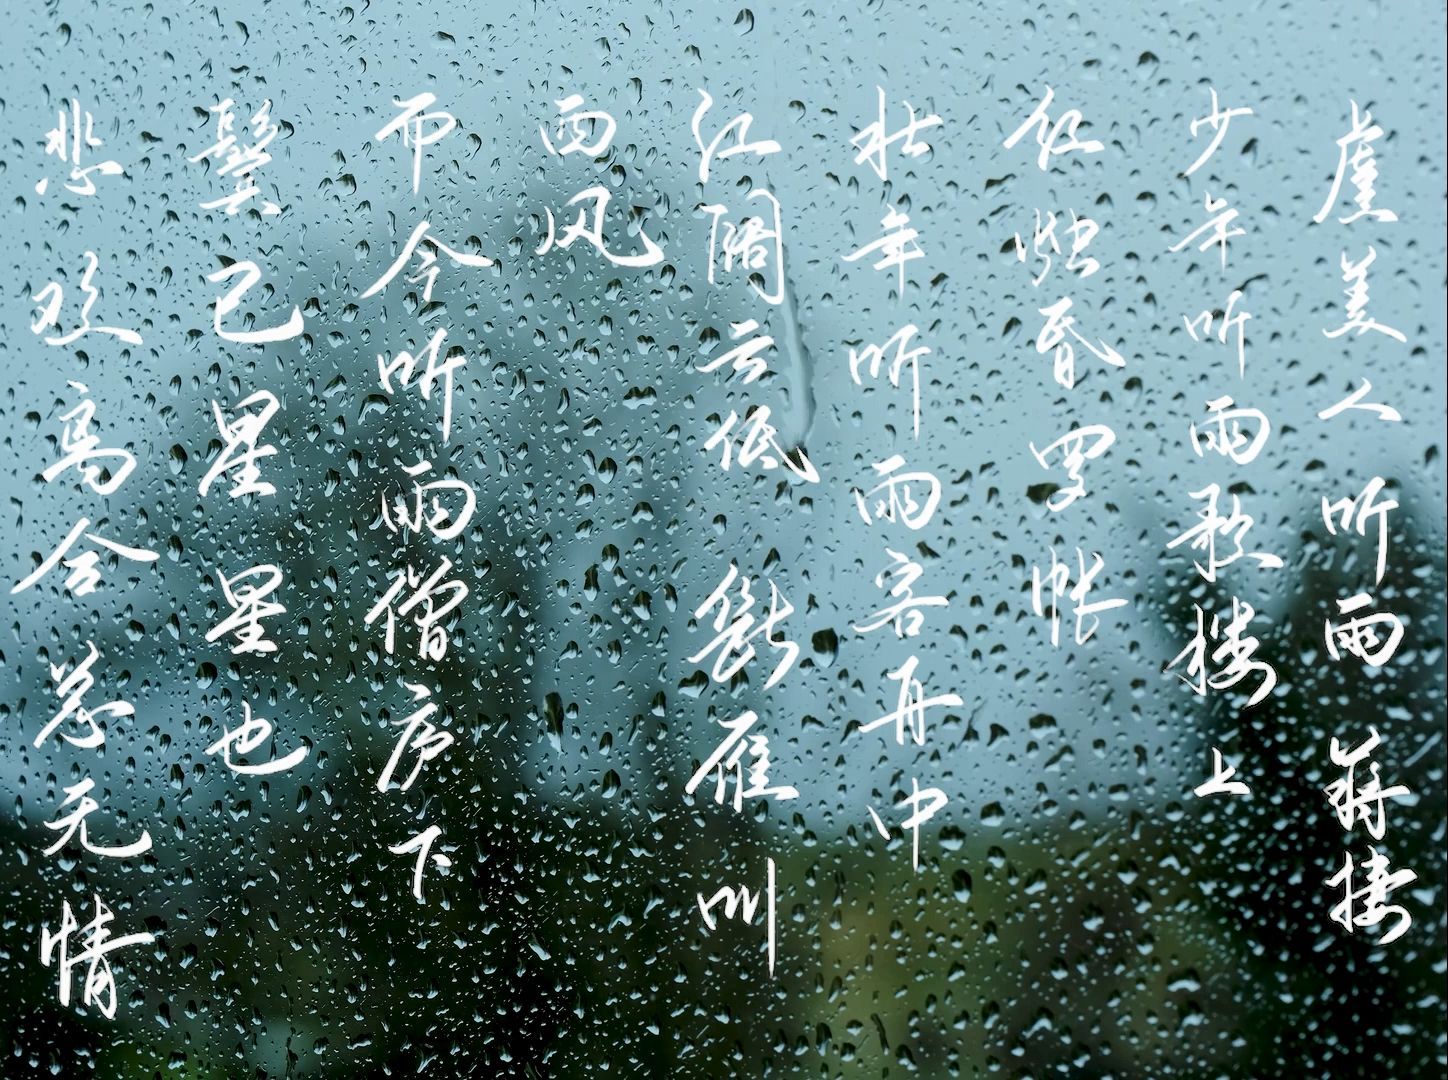 虞美人 听雨 蒋捷
少年听雨歌楼上
红烛昏罗帐
壮年听雨客舟中
江阔云低 断雁叫
西风
而今听雨僧庐下
鬓已星星也
悲欢离合总无情